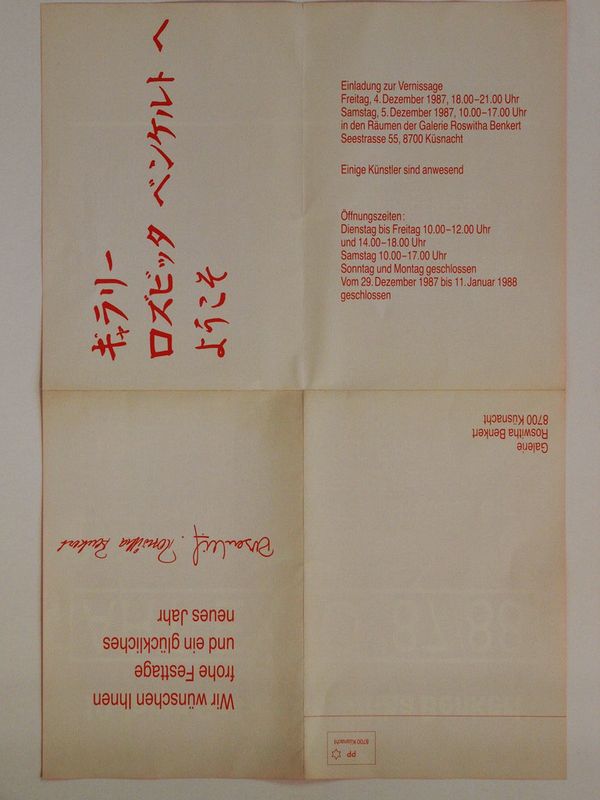 ギャラリー
ロズビッタ ベンケルト へ
ようこそ
Einladung zur Vernissage
Freitag, 4. Dezember 1987, 18.00–21.00 Uhr
Samstag, 5. Dezember 1987, 10.00–17.00 Uhr
in den Räumen der Galerie Roswitha Benkert
Seestrasse 55, 8700 Küsnacht
Einige Künstler sind anwesend
Öffnungszeiten:
Dienstag bis Freitag 10.00–12.00 Uhr
und 14.00–18.00 Uhr
Samstag 10.00–17.00 Uhr
Sonntag und Montag geschlossen
Vom 29. Dezember 1987 bis 11. Januar 1988
geschlossen
Wir wünschen Ihnen
frohe Festtage
und ein glückliches
neues Jahr
Roswitha Benkert
Galerie
Roswitha Benkert
8700 Küsnacht
PP
8700 Küsnacht